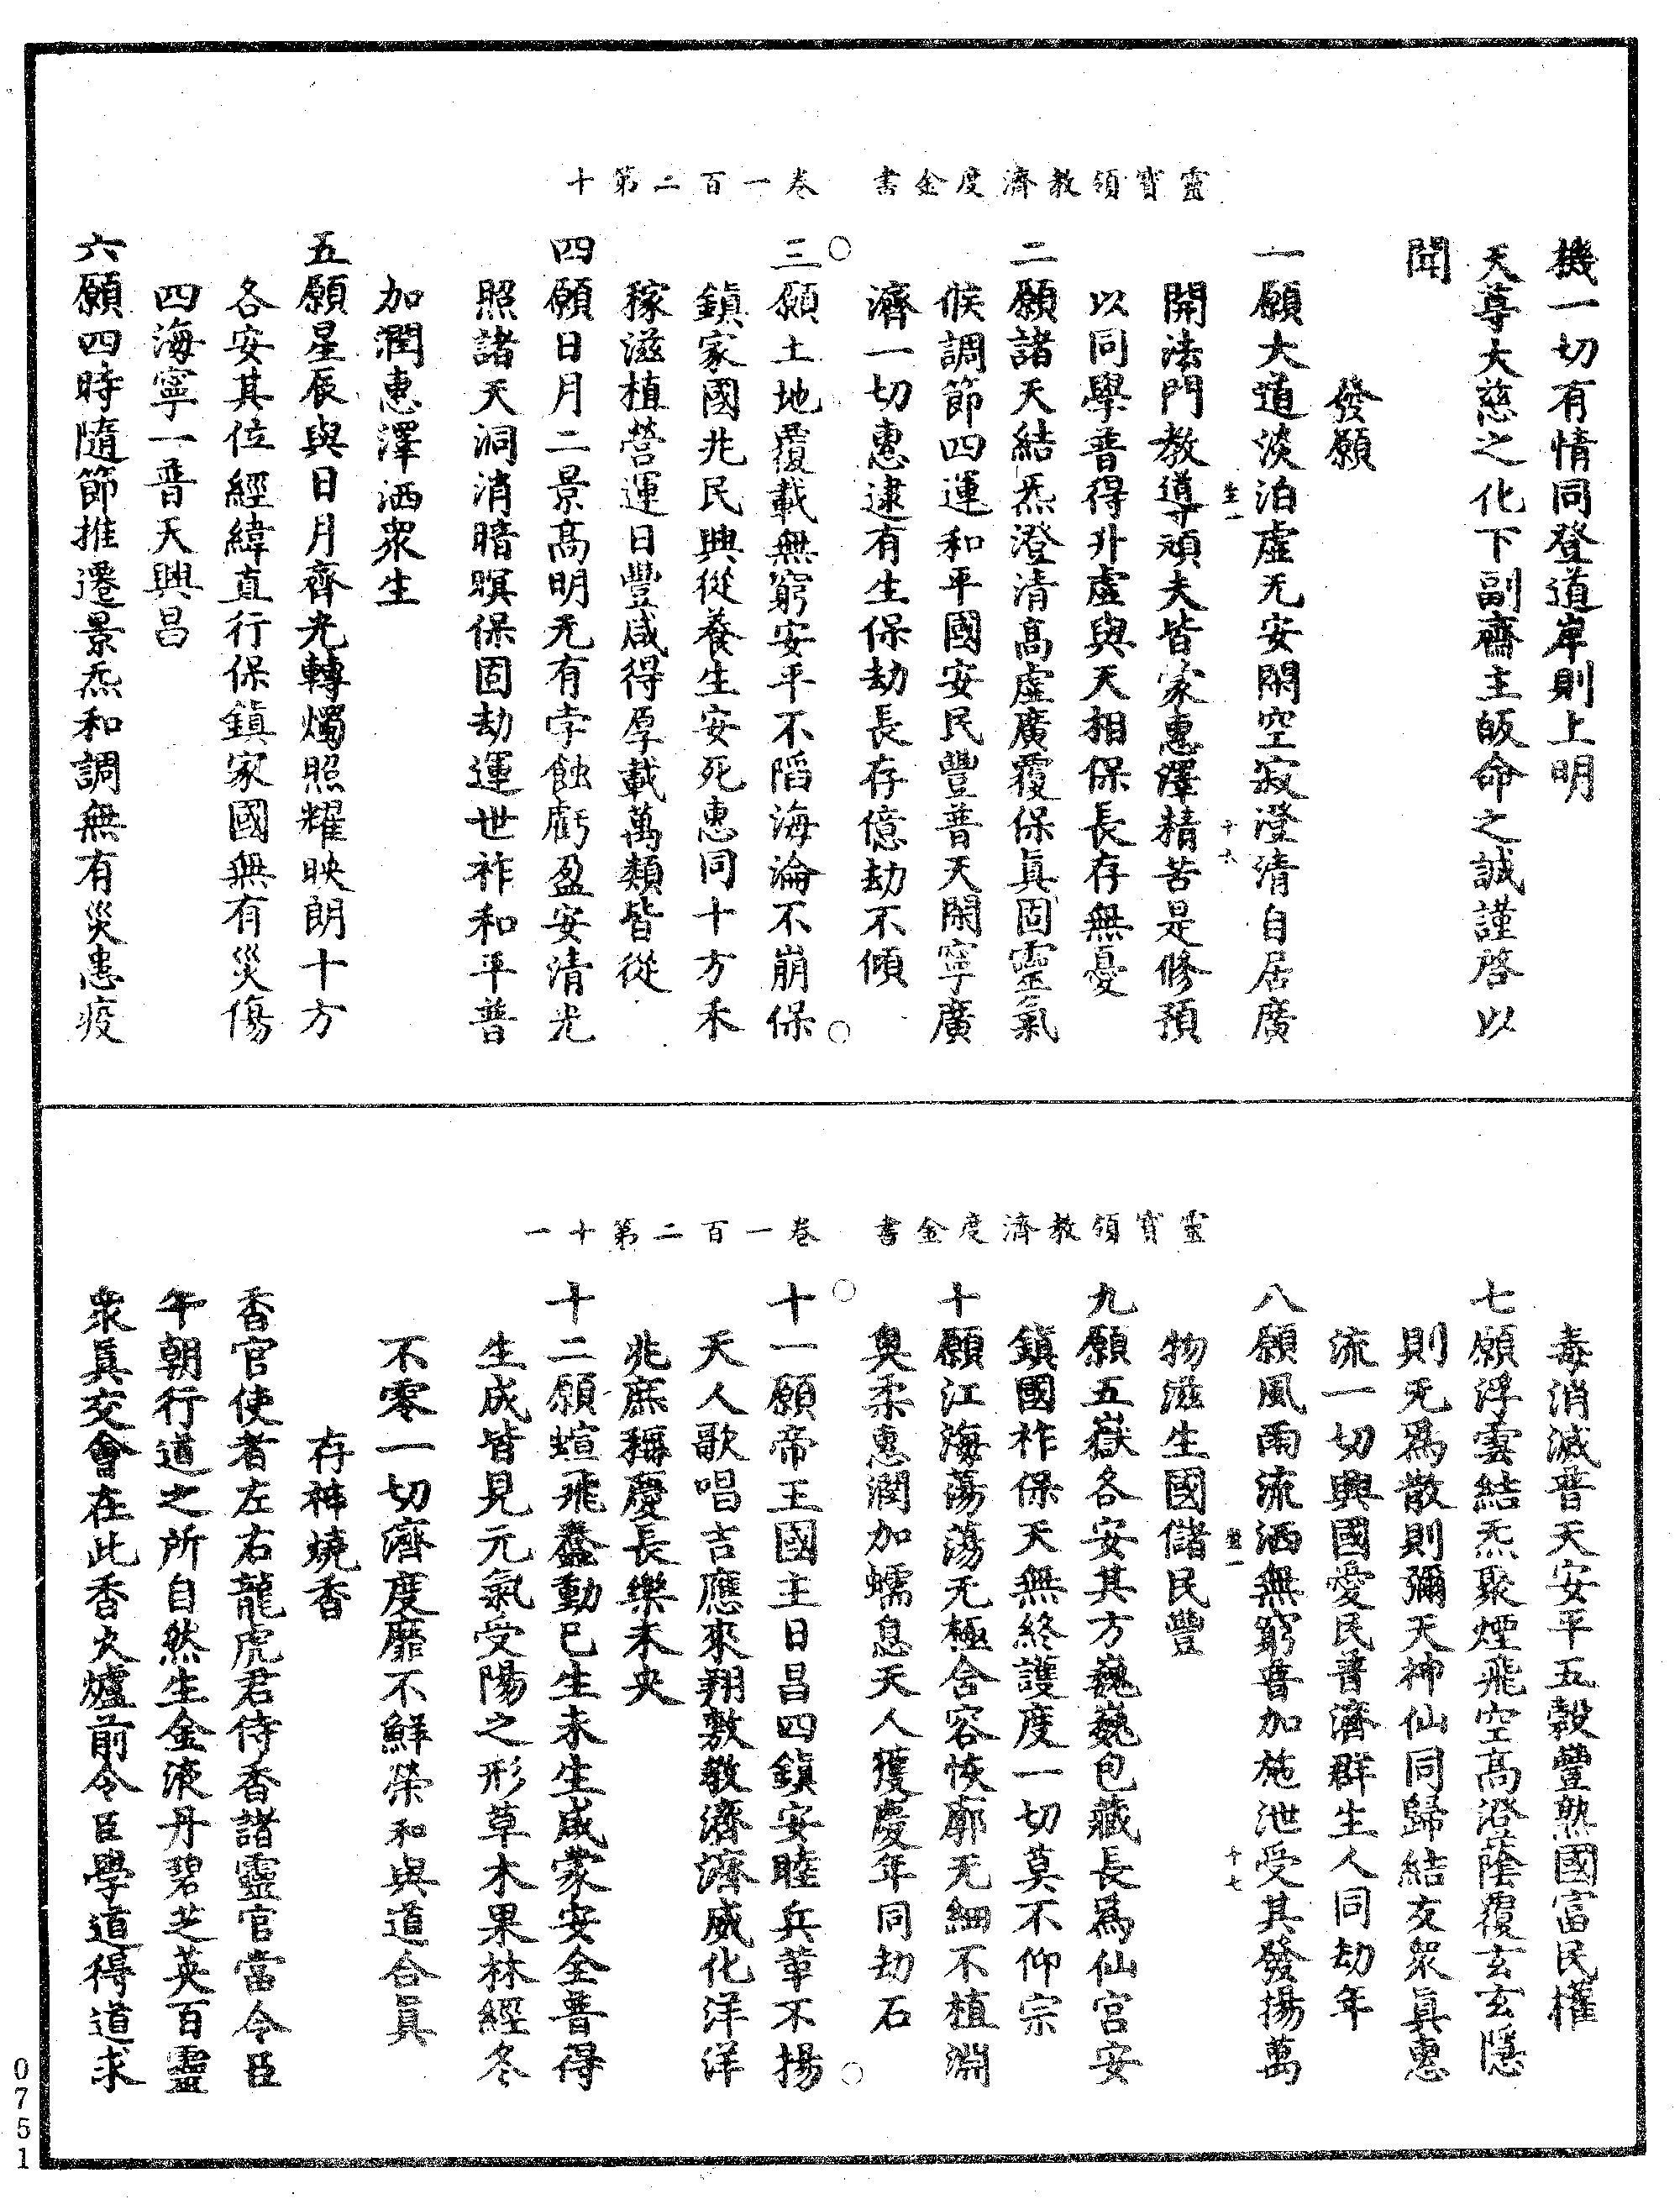 靈寶領教濟度金書　卷一百二第十
機一切有情同登道岸則上明
天尊大慈之化下副齋主皈命之誠謹啓以
聞
發願
一願大道淡泊虛无安閑空寂澄清自居廣
開法門教導頑夫皆蒙惠澤精苦是修預
以同學普得升虛與天相保長存無憂
二願諸天結炁澄清高虛廣覆保眞固靈氣
候調節四運和平國安民豐普天閑寧廣
濟一切惠逮有生保劫長存億劫不傾
三願土地覆載無窮安平不陷海淪不崩保
鎮家國兆民興從養生安死惠同十方禾
稼滋植營運日豐咸得厚載萬類皆從
四願日月二景高明无有孛蝕虧盈安清光
照諸天洞消暗暝保固劫運世祚和平普
加潤惠澤洒衆生
五願星辰與日月齊光轉燭照耀映朗十方
各安其位經緯直行保鎮家國無有災傷
四海寧一普天興昌
六願四時隨節推遷景炁和調無有災患疫
靈寶領教濟度金書　卷一百二第十一
毒消滅普天安平五穀豐熟國富民權
七願浮雲結炁聚煙飛空高澄蔭覆玄玄隱
則无爲散則彌天神仙同歸結友衆眞惠
流一切興國愛民普濟群生人同劫年
八願風雨流洒無窮普加施泄受其發揚萬
物滋生國儲民豐
九願五嶽各安其方巍巍包藏長爲仙宮安
鎮國祚保天無終護度一切莫不仰宗
十願江海蕩蕩无極含容恢廓无細不植淵
奧柔惠潤加蠕息天人獲慶年同劫石
十一願帝王國主日昌四鎮安睦兵革不揚
天人歌唱吉應來翔敷教濟濟威化洋洋
兆庶稱慶長樂未央
十二願蝖飛蠢動已生未生咸蒙安全普得
生成皆見元氣受陽之形草木果林經冬
不零一切濟度靡不鮮榮和與道合眞
存神燒香
香官使者左右龍虎君侍香諸靈官當令臣
午朝行道之所自然生金液丹碧芝英百靈
衆眞交會在此香火爐前令臣學道得道求
0751